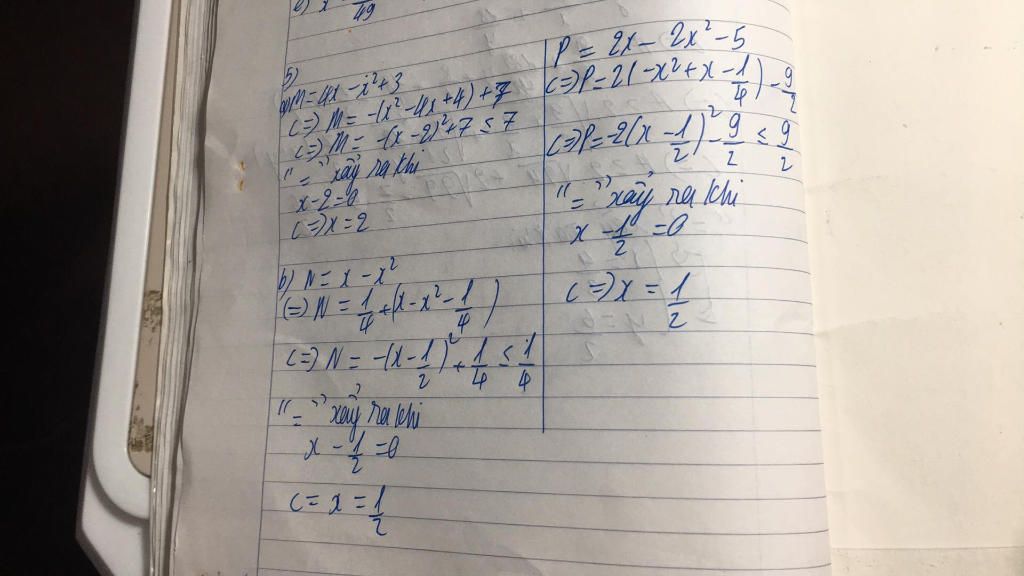 c) x
49
5)
a) M = 4x - x² + 3
<=> M = -(x² - 4x + 4) + 7
<=> M = -(x - 2)² + 7 ≤ 7
"=" xảy ra khi
x - 2 = 0
<=> x = 2
b) N = x - x²
<=> N = 1/4 + (x - x² - 1/4)
<=> N = -(x - 1/2)² + 1/4 ≤ 1/4
"=" xảy ra khi
x - 1/2 = 0
<= x = 1/2
P = 2x - 2x² - 5
<=> P = 2(-x² + x - 1/4) - 9/2
<=> P = -2(x - 1/2)² - 9/2 ≤ 9/2
"=" xảy ra khi
x - 1/2 = 0
<=> x = 1/2